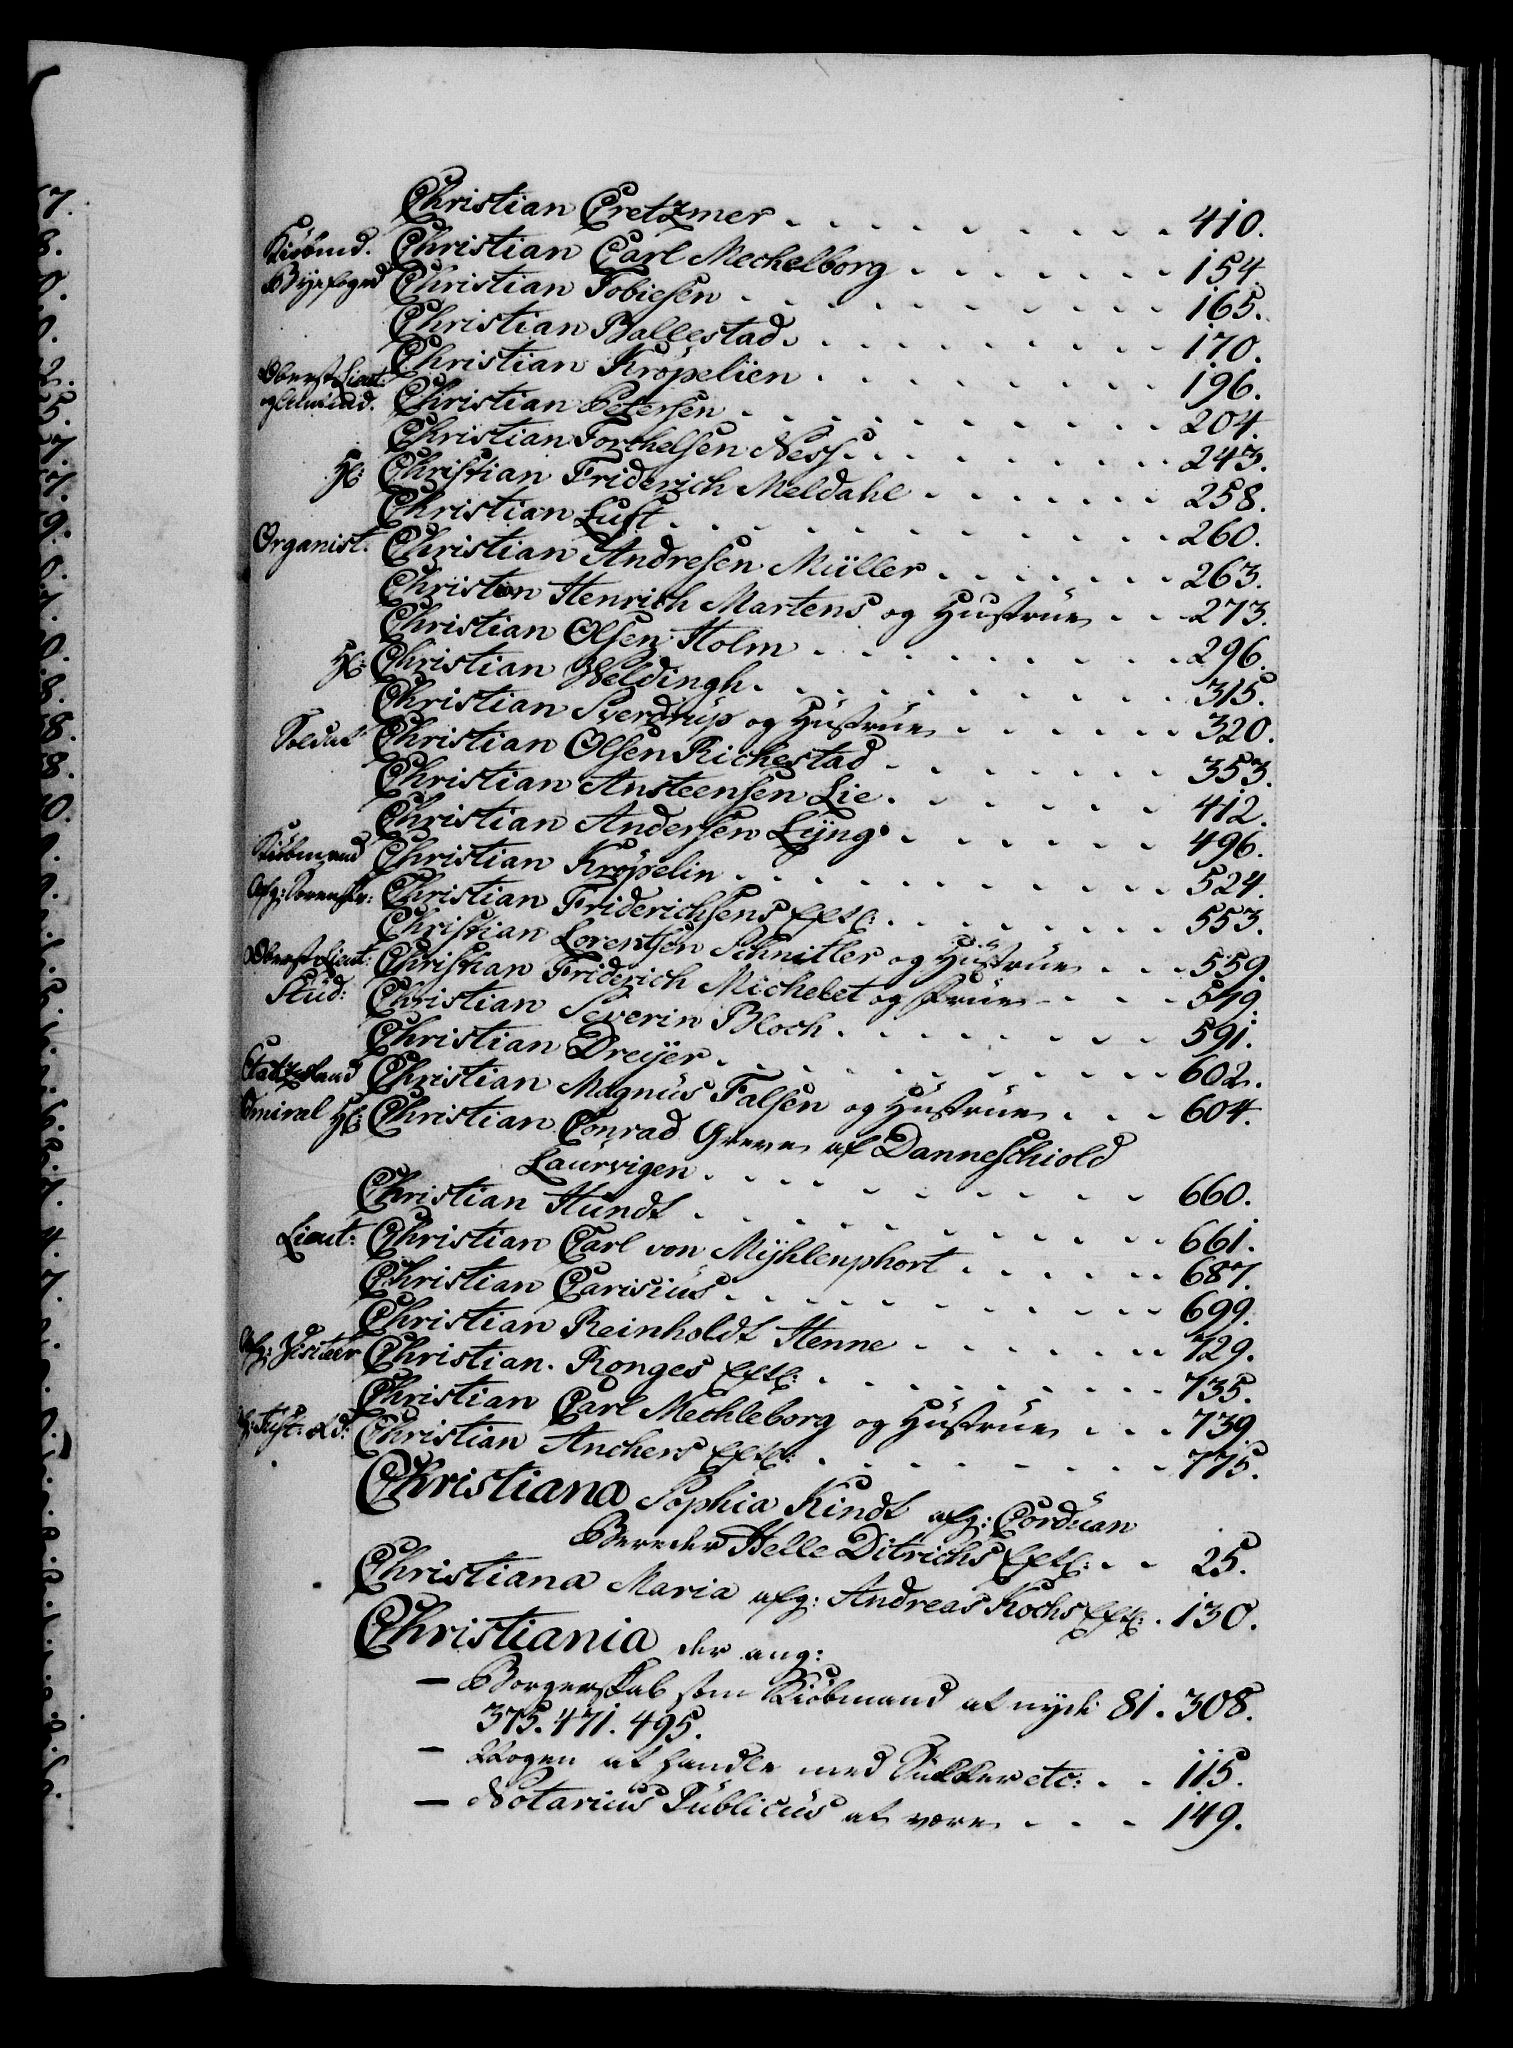 Christian Cretzmer . . . . . . . . 410.
Kiöbmd. Christian Carl Mechelborg . . . . . . 154.
Byefoged Christian Tobiesen . . . . . . . . . 165.
Christian Ballestad . . . . . . . . . 170.
Christian Kröpelien . . . . . . . . 196.
Oberst Lieut: Christian Petersen . . . . . . . . . 204.
Christian Torchelsen Ness . . . . . . . 243.
Hr: Christian Friderich Meldahl . . . . . . 258.
Christian Luft . . . . . . . . . . 260.
Organist. Christian Andresen Müller . . . . . . 263.
Christian Henrich Martens og Hustrue . . 273.
Christian Olsen Holm . . . . . . . . . 296.
Hr: Christian Weldingh . . . . . . . . . . 315.
Christian Sverdrup og Hustrue . . . . . . 320.
Soldat Christian Olsen Richestad . . . . . . . 353.
Christian Ansteensen Lie . . . . . . . 412.
Christian Andersen Lÿng . . . . . . . 496.
Kiöbmand Christian Kröpelin . . . . . . . . . . 524.
Afg: Sorenskr: Christian Friderichsens Efterl: . . . . . . . 553.
Christian Lorentsen Schnitler og Hustrue . . . 559.
Oberst Lieut: Christian Friderich Michelet og Frue . . . . 579.
Stud: Christian Severin Bloch . . . . . . . . 591.
Christian Dreÿer . . . . . . . . . . 602.
Christian Magnus Falsen og Hustrue . . . 604.
Admiral Hr: Christian Conrad Greve af Danneschiold
Laurvigen . . . . . . . . . . 660.
Christian Hundt . . . . . . . . . . 661.
Lieut: Christian Carl von Mÿhlenphort . . . . . 687.
Christian Carisius . . . . . . . . . . 699.
Christian Reinholdt Henne . . . . . . . 729.
Afg: Visiteur Christian Ronges Efterl: . . . . . . . . . 735.
Christian Carl Mechleborg og Hustrue . . . 739.
Christian Anchers Efterl: . . . . . . . . . 775.
Christiana Sophia Kindt afg: Corduan
Bereder Helle Ditrichs Efterl: . . 25.
Christiana Maria afg: Andreas Kochs Efterl: . 130.
Christiania der ang:
— Borgerskab som Kiöbmand at nyde 81. 308.
375. 471. 495.
— Nogen at handle med Sukker etc: . . 115.
— Notarius Publicus at være . . . 149.